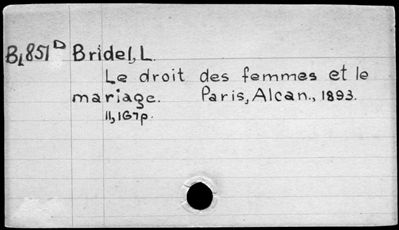 BL851D Bridel, L.
Le droit des femmes et le
mariage. Paris, Alcan., 1893.
11, 167p.